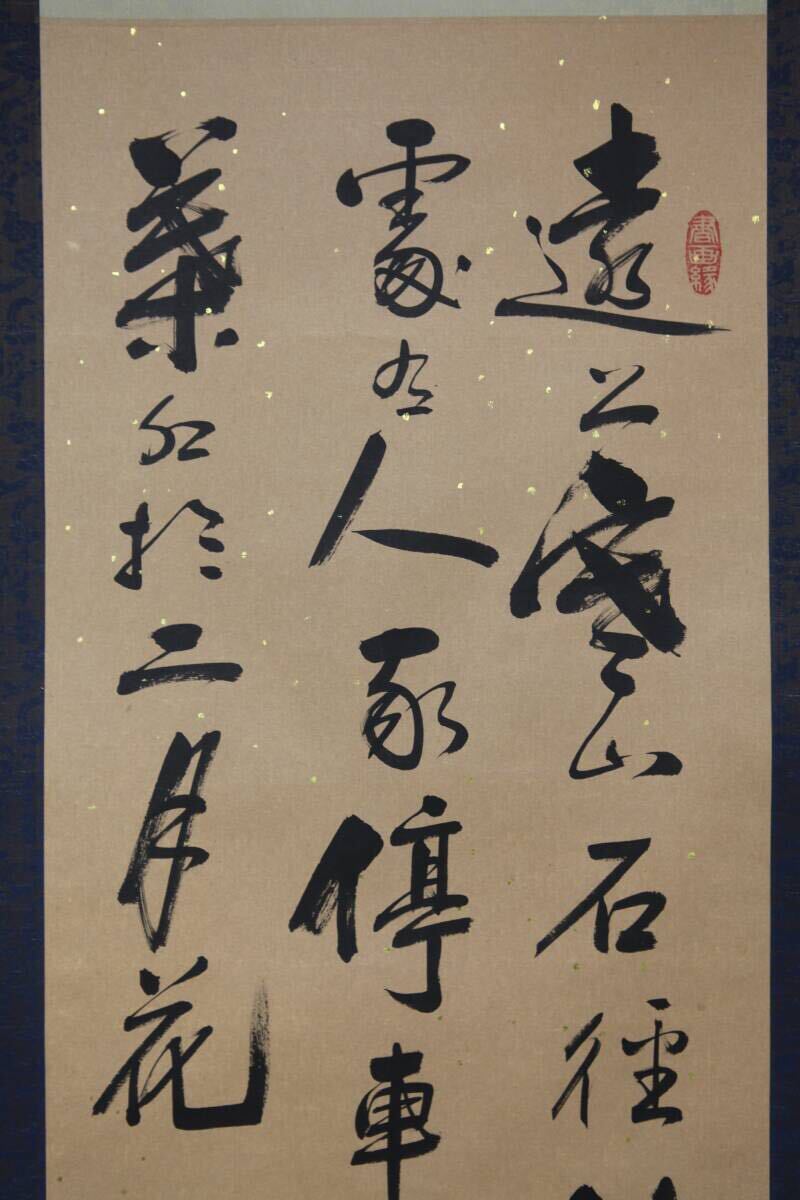 遠上寒山石徑
處有人家停車
葉紅於二月花
書画緣